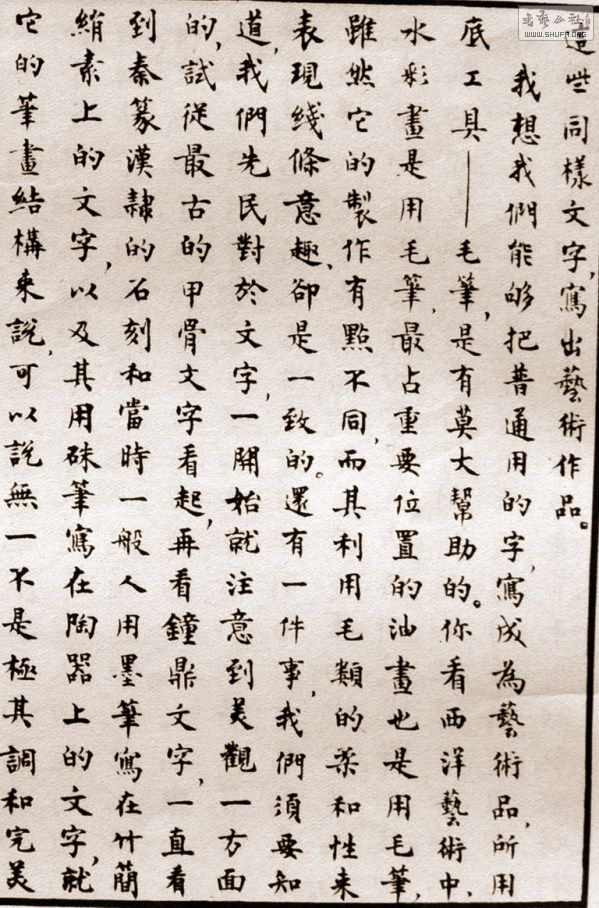 書藝公社
WWW.SHUFA.ORG
這些同樣文字,寫出藝術作品。
我想我們能够把普通用的字,寫成為藝術品,所用
底工具——毛筆,是有莫大幫助的。你看西洋藝術中,
水彩畫是用毛筆,最占重要位置的油畫也是用毛筆,
雖然它的製作有點不同,而其利用毛類的柔和性来
表現綫條意趣,卻是一致的。還有一件事,我們須要知
道,我們先民對於文字,一開始就注意到美觀一方面
的,試從最古的甲骨文字看起,再看鐘鼎文字,一直看
到秦篆漢隸的石刻和當時一般人用墨筆寫在竹簡
絹素上的文字,以及其用硃筆寫在陶器上的文字,就
它的筆畫結構来說,可以說無一不是極其調和完美